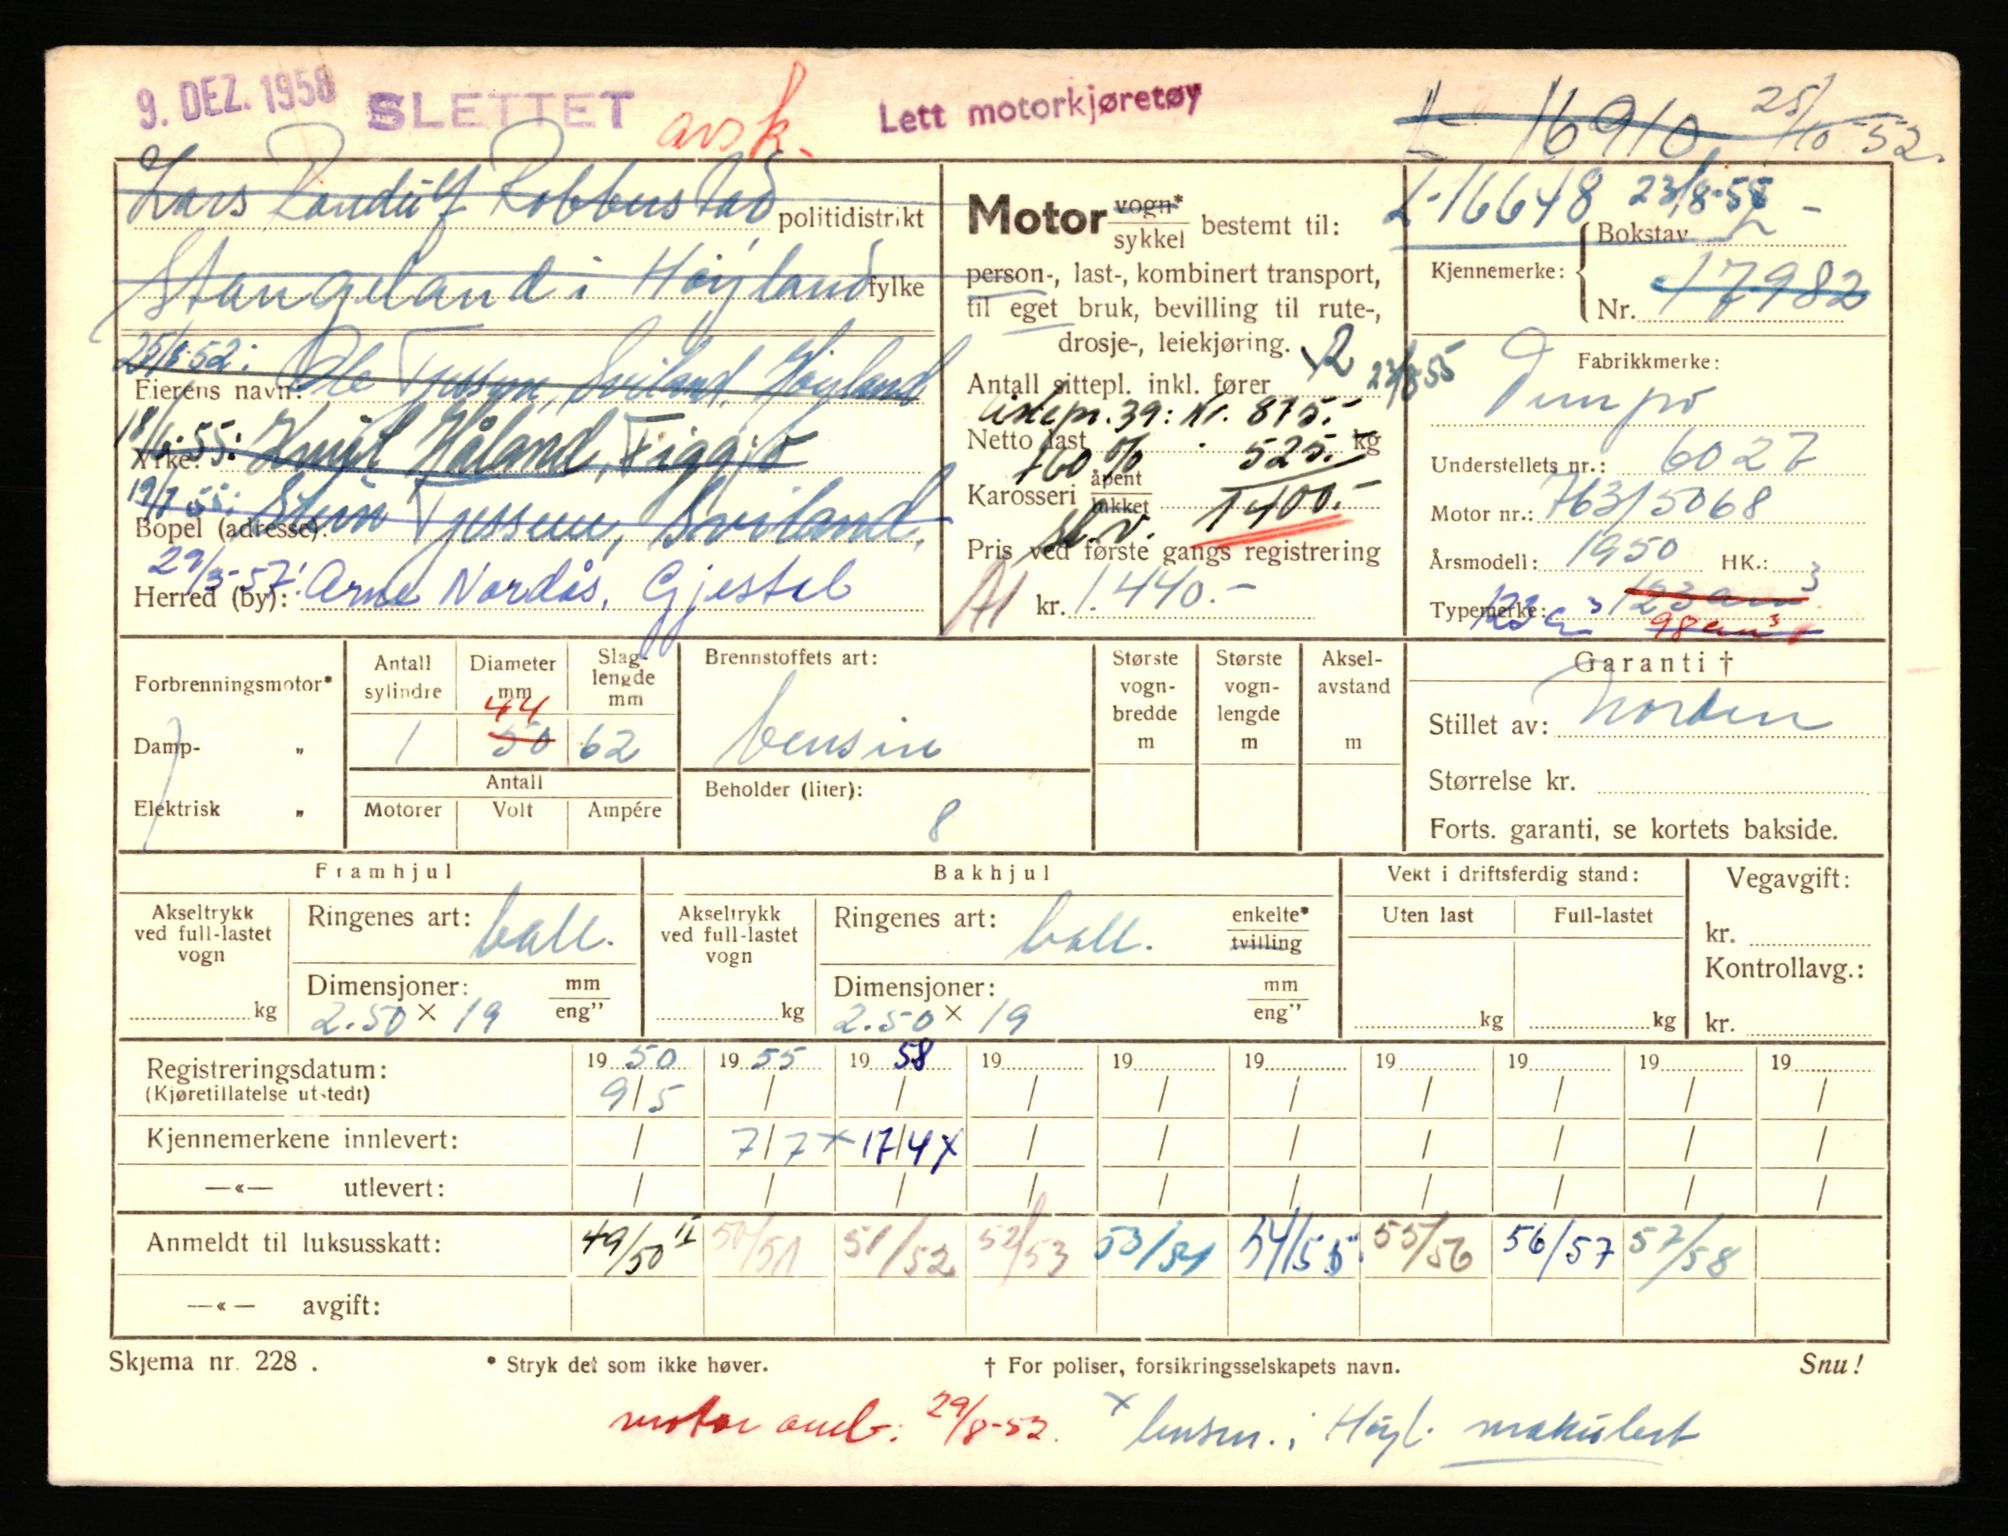 9. DEZ. 1958 SLETTET avsk. Lett motorkjøretøy L- 16910 25/10 52.
Lars Randulf Robberstad politidistrikt
Stangeland i Høyland fylke
25/8-52: Ole Tjessem, Sviland, Høyland
Eierens navn:
18/6-55: Emil Håland, Figgjo
Yrke:
19/7 55: Stein Tjessem, Sviland.
Bopel (adresse):
29/3-57: Arne Nordås, Gjestal
Herred (by):
Motor vogn* sykkel bestemt til:
person-, last-, kombinert transport,
til eget bruk, bevilling til rute-,
drosje-, leiekjøring.
Antall sittepl. inkl. fører 2 23/8-55
39: kr. 875.-
Netto last 525. kg
+60 %
Karosseri åpent lukket 1400.-
Pris ved første gangs registrering
A1 kr. 1.440.-
L-16648 23/8-55
Kjennemerke: Bokstav L -
Nr. 17982
Fabrikkmerke:
Tempo
Understellets nr.: 6027
Motor nr.: 763/5068
Årsmodell: 1950 HK.:
Typemerke: 123 cm³
98 cm³
Forbrenningsmotor*
Damp- „
Elektrisk „
Antall sylindre 1
Diameter mm 44 50
Slaglengde mm 62
Antall
Motorer Volt Ampére
Brennstoffets art:
bensin
Beholder (liter):
8
Største vogn-bredde m
Største vogn-lengde m
Aksel-avstand m
Garanti †
Stillet av: Norden
Størrelse kr.
Forts. garanti, se kortets bakside.
Framhjul
Akseltrykk ved full-lastet vogn kg
Ringenes art: ball.
Dimensjoner: mm eng”
2.50 × 19
Bakhjul
Akseltrykk ved full-lastet vogn kg
Ringenes art: ball. enkelte* tvilling
Dimensjoner: mm eng”
2.50 × 19
Vekt i driftsferdig stand:
Uten last Full-lastet
kg kg
Vegavgift:
kr.
Kontrollavg.:
kr.
Registreringsdatum: 19 50 19 55 19 58 19 19 19 19 19 19 19
(Kjøretillatelse utstedt) 9/5 / / / / / / / / /
Kjennemerkene innlevert: / 7/7 × 17/4 × / / / / / / /
—«— utlevert: / / / / / / / / / /
Anmeldt til luksusskatt: 49/50 II 50/51 51/52 52/53 53/54 54/55 55/56 56/57 57/58
—«— avgift:
Skjema nr. 228 . * Stryk det som ikke høver. † For poliser, forsikringsselskapets navn. Snu!
motor omb: 29/8-52. × lensm. i Høyl. makulert